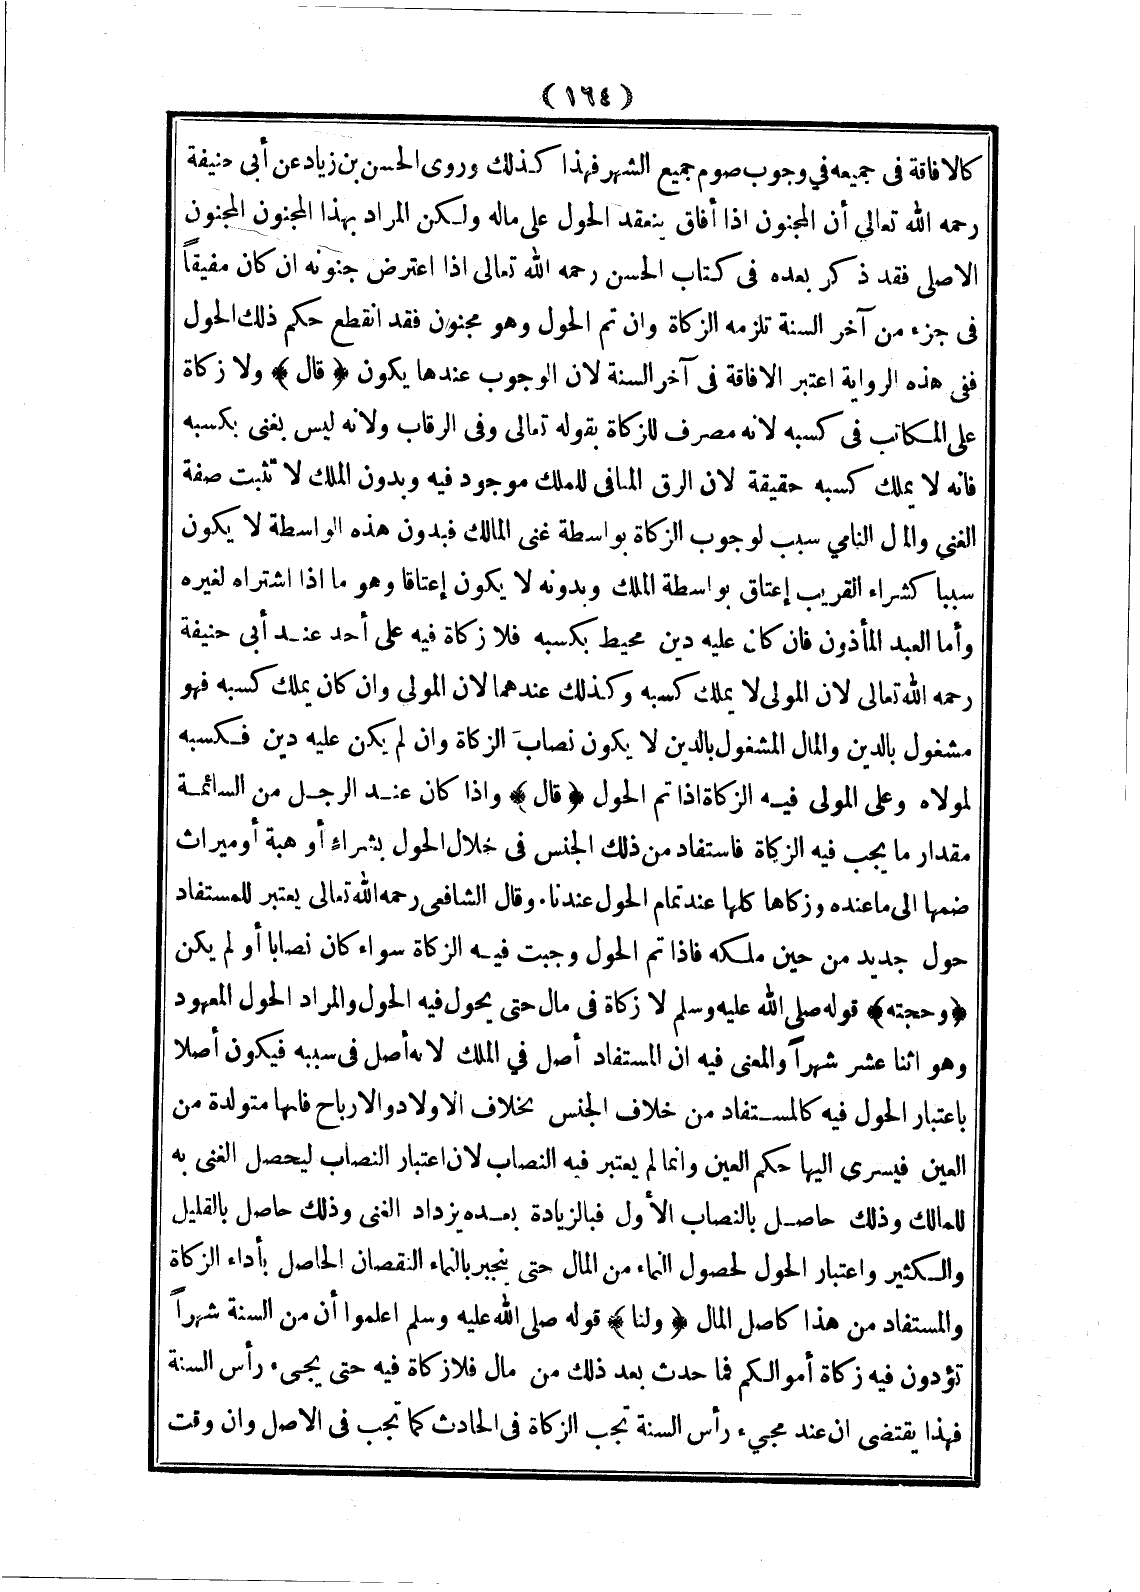 (١٦٤)
كالافاقة فى جميعه في وجوب صوم جميع الشهر فهذا كذلك وروى الحسن بن زياد عن أبى حنيفة
رحمه الله تعالى أن المجنون اذا أفاق ينعقد الحول على ماله ولكن المراد بهذا المجنون المجنون
الاصلى فقد ذكر بعده فى كتاب الحسن رحمه الله تعالى اذا اعترض جنونه ان كان مفيقاً
فى جزء من آخر السنة تلزمه الزكاة وان تم الحول وهو مجنون فقد انقطع حكم ذلك الحول
ففى هذه الرواية اعتبر الافاقة فى آخر السنة لان الوجوب عندها يكون ﴿ قال ﴾ ولا زكاة
على المكاتب فى كسبه لانه مصرف للزكاة بقوله تعالى وفى الرقاب ولانه ليس بغنى بكسبه
فانه لا يملك كسبه حقيقة لان الرق المنافى للملك موجود فيه وبدون الملك لا تثبت صفة
الغنى والمال النامي سبب لوجوب الزكاة بواسطة غنى المالك فبدون هذه الواسطة لا يكون
سببا كشراء القريب إعتاق بواسطة الملك وبدونه لا يكون إعتاقا وهو ما اذا اشتراه لغيره
وأما العبد المأذون فان كان عليه دين محيط بكسبه فلا زكاة فيه على أحد عند أبى حنيفة
رحمه الله تعالى لان المولى لا يملك كسبه وكذلك عندهما لان المولى وان كان يملك كسبه فهو
مشغول بالدين والمال المشغول بالدين لا يكون نصاب الزكاة وان لم يكن عليه دين فكسبه
لمولاه وعلى المولى فيه الزكاة اذا تم الحول ﴿ قال ﴾ واذا كان عند الرجل من السائمة
مقدار ما يجب فيه الزكاة فاستفاد من ذلك الجنس فى خلال الحول بشراء أو هبة أو ميراث
ضمها الى ما عنده وزكاها كلها عند تمام الحول عندنا. وقال الشافعى رحمه الله تعالى يعتبر للمستفاد
حول جديد من حين ملكه فاذا تم الحول وجبت فيه الزكاة سواء كان نصابا أو لم يكن
﴿وحجته﴾ قوله صلى الله عليه وسلم لا زكاة فى مال حتى يحول فيه الحول والمراد الحول المعهود
وهو اثنا عشر شهراً والمعنى فيه ان المستفاد أصل في الملك لانه أصل فى سببه فيكون أصلا
باعتبار الحول فيه كالمستفاد من خلاف الجنس بخلاف الاولاد والارباح فانها متولدة من
العين فيسرى اليها حكم العين وانما لم يعتبر فيه النصاب لان اعتبار النصاب ليحصل الغنى به
للمالك وذلك حاصل بالنصاب الأول فبالزيادة بعده يزداد الغنى وذلك حاصل بالقليل
والكثير واعتبار الحول لحصول النماء من المال حتى ينجبر بالنماء النقصان الحاصل بأداء الزكاة
والمستفاد من هذا كاصل المال ﴿ ولنا ﴾ قوله صلى الله عليه وسلم اعلموا أن من السنة شهراً
تؤدون فيه زكاة أموالكم فما حدث بعد ذلك من مال فلا زكاة فيه حتى يجىء رأس السنة
فهذا يقتضى ان عند مجيء رأس السنة تجب الزكاة فى الحادث كما تجب فى الاصل وان وقت